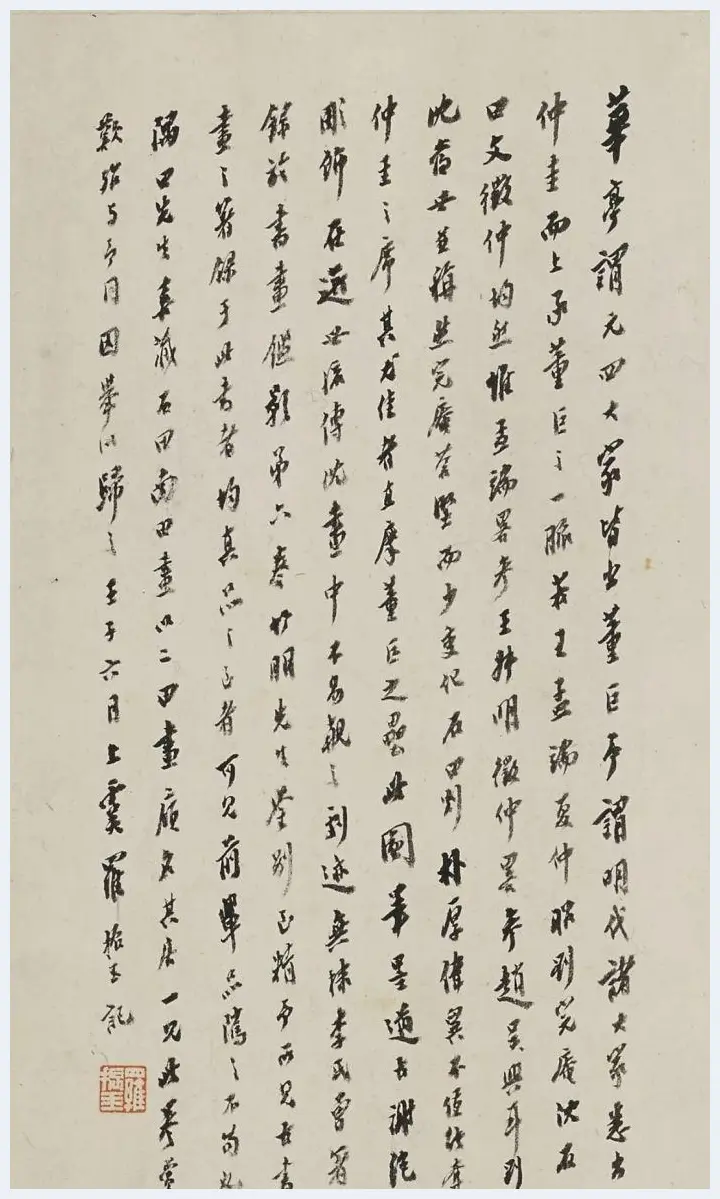 華亭謂元四大家皆出董巨予謂明代諸大家悉出
仲圭而上承董巨之一脈若王孟端夏仲昭劉完庵沈石
田文徵仲均然惟孟端畧參王叔明徵仲畧參趙吳興耳劉
沈當世並稱然完庵蒼堅而少變化石田則朴厚偉異不僅能奪
仲圭之席其尤佳者直摩董巨之壘此圖筆墨遒古謝絕
彫飾在遯世流傳沈畫中不易覯之劇迹無殊李氏曾著
錄於書畫鑑影第六卷竹朋先生鑒別至精予所見古書
畫之著錄于此書者均真品之至者可見前輩品隲之不苟也
隅田先生喜藏石田南田畫以二田畫廎名其居一見此卷愛
歎殆與予同因舉以歸之壬子六月上虞羅振玉記
羅振玉